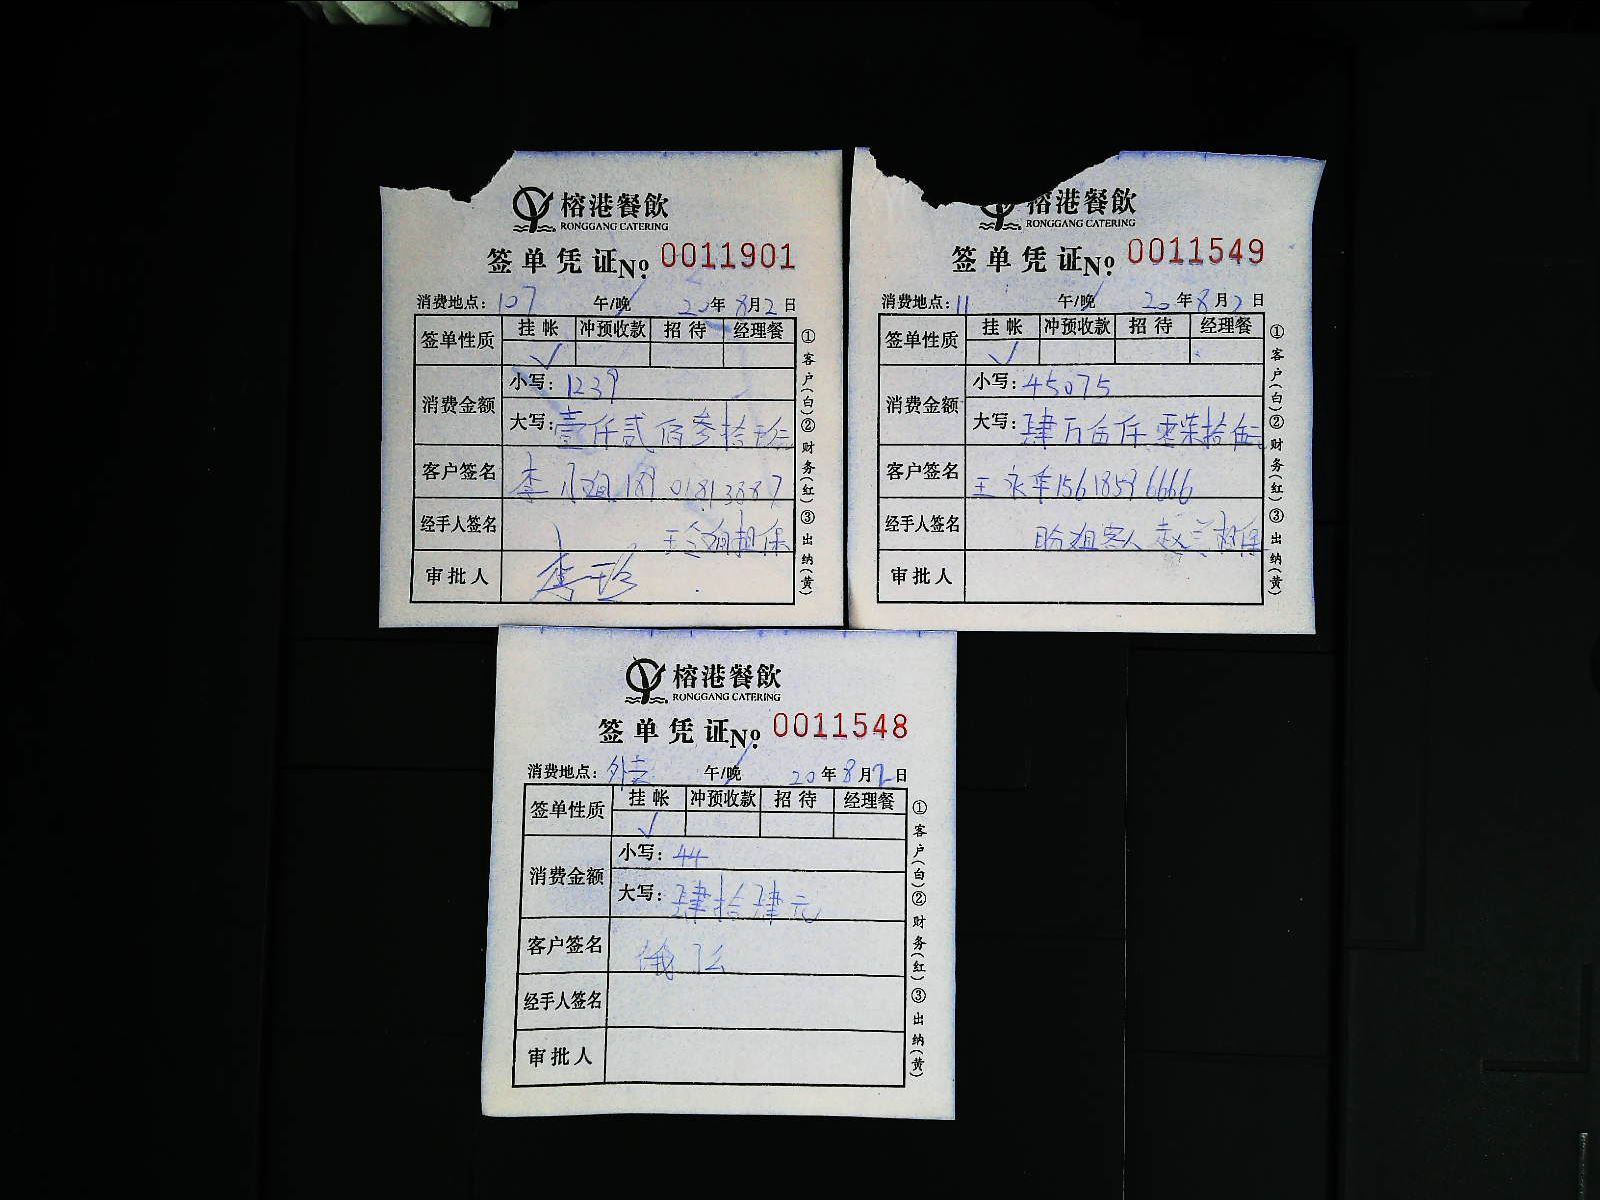 榕港餐飲
RONGGANG CATERING
签单凭证 Nº 0011901
消费地点: 107 午/晚 20年8月2日
签单性质 挂帐 冲预收款 招待 经理餐
✓
消费金额 小写: 1239
大写: 壹仟贰佰叁拾玖元
客户签名 李小姐 189 01813887
经手人签名 担保
审批人
①客户(白)②财务(红)③出纳(黄)
榕港餐飲
RONGGANG CATERING
签单凭证 Nº 0011549
消费地点: 11 午/晚 20年8月2日
签单性质 挂帐 冲预收款 招待 经理餐
✓
消费金额 小写: 45075
大写: 肆万伍仟零柒拾伍元
客户签名 王永华 15618596666
经手人签名 盼姐客人 赵兰担保
审批人
①客户(白)②财务(红)③出纳(黄)
榕港餐飲
RONGGANG CATERING
签单凭证 Nº 0011548
消费地点: 外卖 午/晚 20年8月2日
签单性质 挂帐 冲预收款 招待 经理餐
✓
消费金额 小写: 44
大写: 肆拾肆元
客户签名 饿了么
经手人签名
审批人
①客户(白)②财务(红)③出纳(黄)